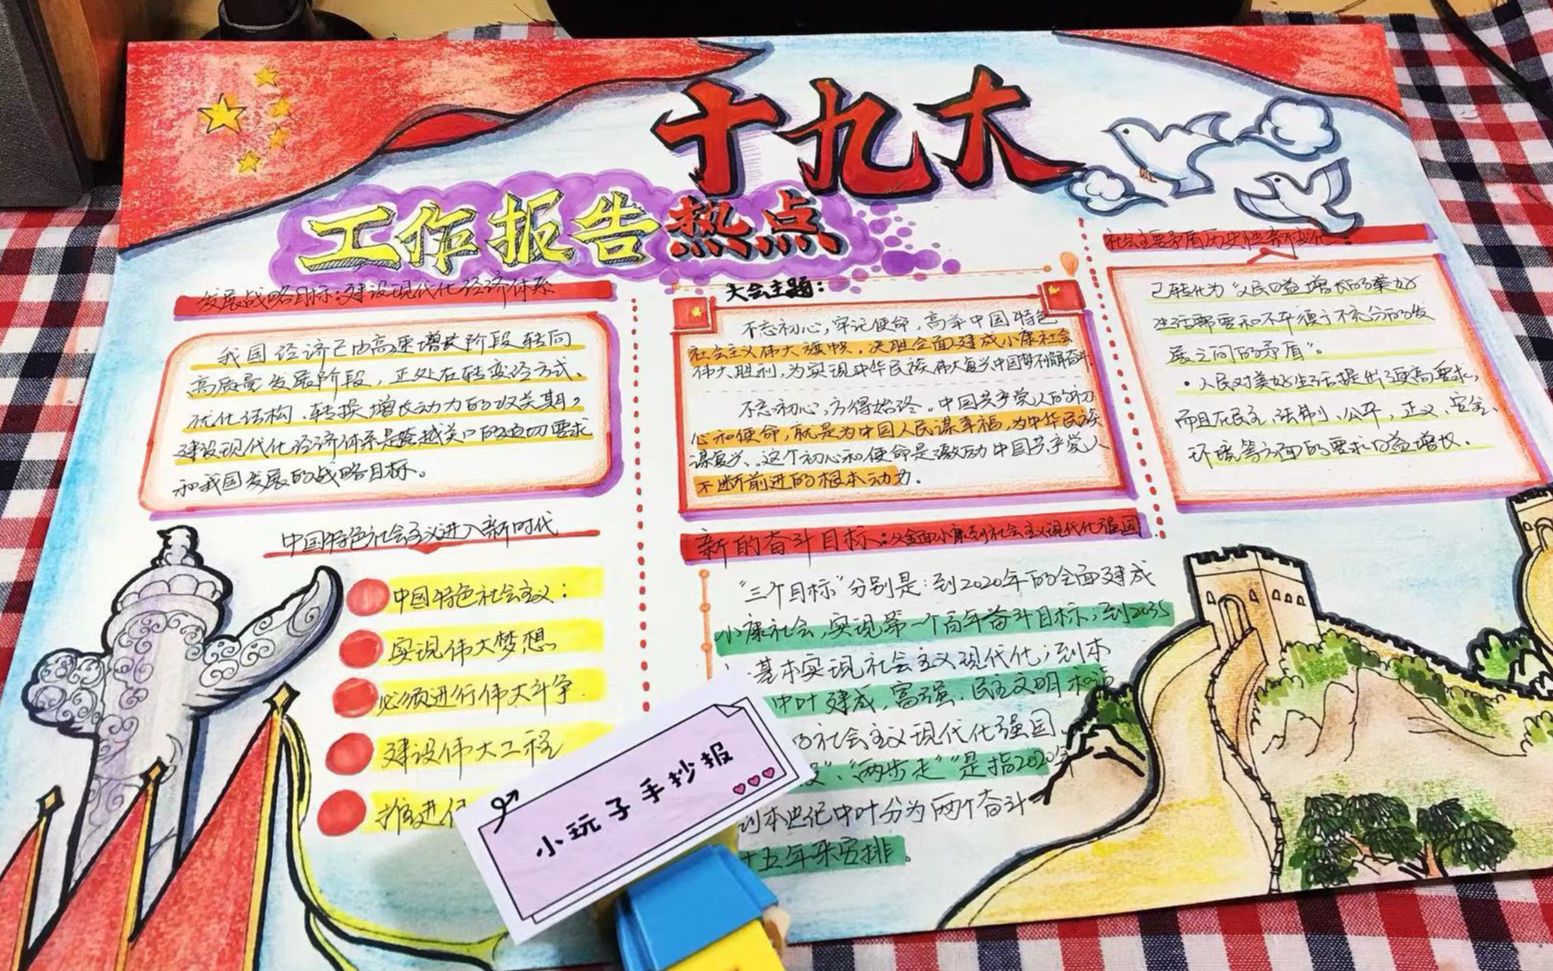 十九大
工作报告热点
发展战略目标:建设现代化经济体系
我国经济已由高速增长阶段转向
高质量发展阶段,正处在转变经方式、
优化结构、转换增长动力的攻关期,
建设现代化经济体系是跨越关口的迫切需求
和我国发展的战略目标。
中国特色社会主义进入新时代
中国特色社会主义:
实现伟大梦想。
必须进行伟大斗争
建设伟大工程
推进
大会主题:
不忘初心,牢记使命,高举中国特色
社会主义伟大旗帜,决胜全面建成小康社会
伟大胜利,为实现中华民族伟大复兴中国梦不懈奋斗
不忘初心,方得始终。中国共产党人的初
心和使命,就是为中国人民谋幸福,为中华民族
谋复兴、这个初心和使命是激励中国共产党人
不断前进的根本动力.
新的奋斗目标:从全面小康到社会主义现代化强国
"三个目标"分别是:到2020年的全面建成
小康社会,实现第一个百年奋斗目标,到2035
基本实现社会主义现代化,到本
中叶建成,富强、民主文明和谐
社会主义现代化强国
"两步走"是指2020
到本世纪中叶分为两个奋斗
十五年来安排。
社会主要矛盾历史性
已转化为"人民日益增长的美好
生活需要和不平衡不充分的发
展之间的矛盾"。
·人民对美好生活提出更高要求,
而且在民主,法制,公平,正义,安全、
环境等方面的要求日益增权.
小玩子手抄报